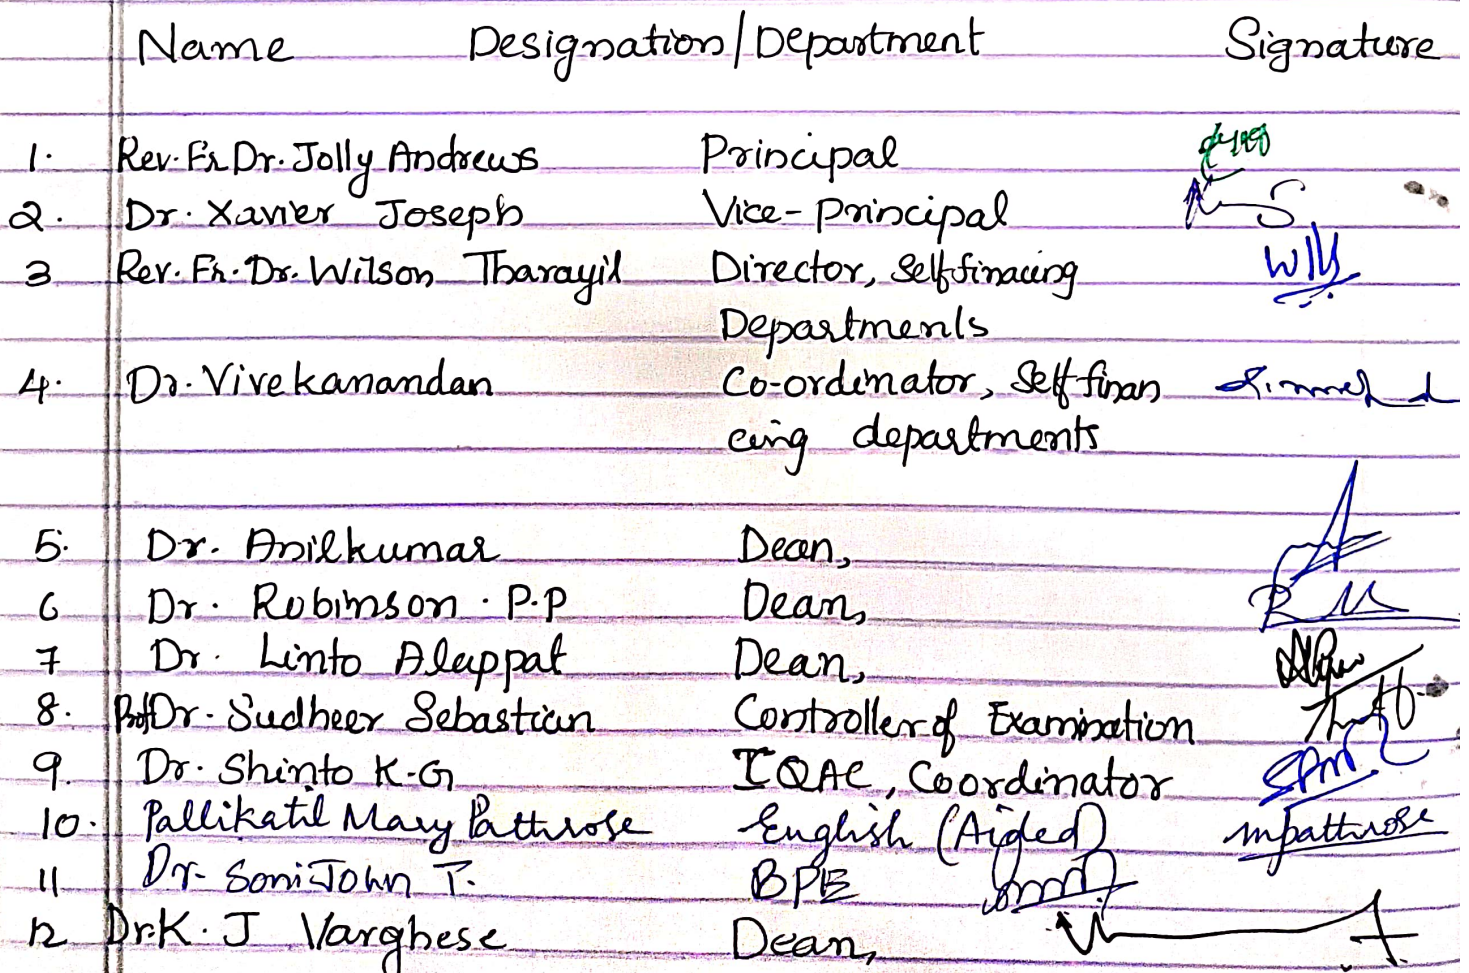 Name Designation/Department Signature
1. Rev. Fr Dr. Jolly Andrews Principal
2. Dr. Xavier Joseph Vice-Principal
3 Rev. Fr. Dr. Wilson Tharayil Director, Self finacing
Departments
4. Dr. Vivekanandan Co-ordinator, Self finan
cing departments
5. Dr. Anilkumar Dean,
6 Dr. Robinson . P.P Dean,
7 Dr. Linto Alappat Dean,
8. Prof Dr. Sudheer Sebastian Controller of Examination
9. Dr. Shinto K.G IQAC, Coordinator
10. Pallikatil Mary Pathrose English (Aided) mpathrose
11 Dr. Soni John T. BPE
12 Dr. K. J Varghese Dean,